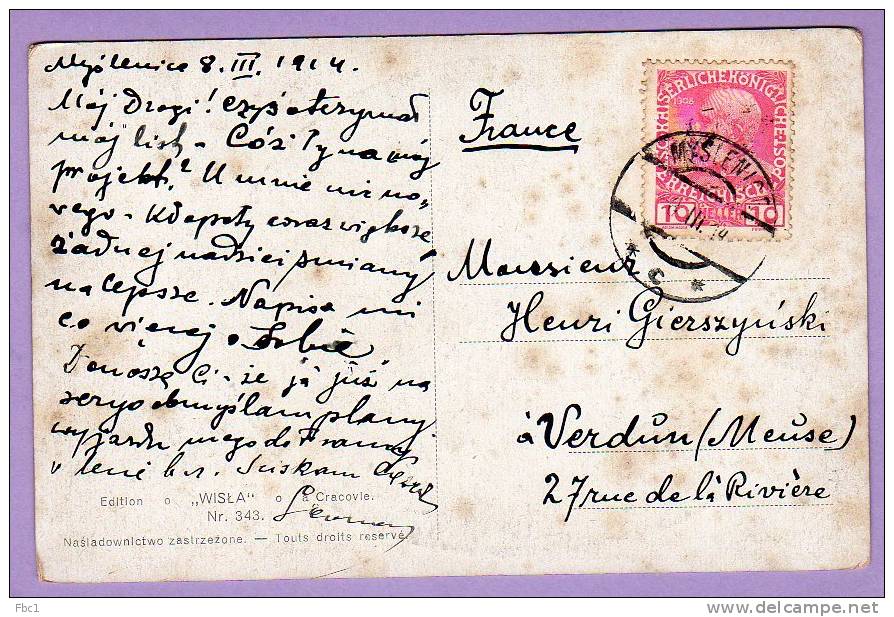 Myślenice 8. III. 1914.
Mój Drogi! Czyś otrzymał
mój list - Cóż Ty na mój
projekt? U mnie nic no-
wego - Kłopoty coraz większe
żadnej nadziei zmiany
na lepsze. Napisz mi
co więcej o Sobie
Donoszę Ci - że ja już na
seryo obmyślam plany
wyjazdu mego do Francyi
w lecie b. r. Ściskam Cię
France
Monsieur
Henri Gierszyński
à Verdun (Meuse)
27 rue de la Rivière
KAISERLICHE KÖNIGLICHE ÖSTERREICHISCHE POST
1908
10 HELLER 10
MYŚLENICE
* C *
Edition o „WISŁA" o à Cracovie.
Nr. 343.
Naśladownictwo zastrzeżone. — Touts droits reservé.
Fbc1
delcampe.net